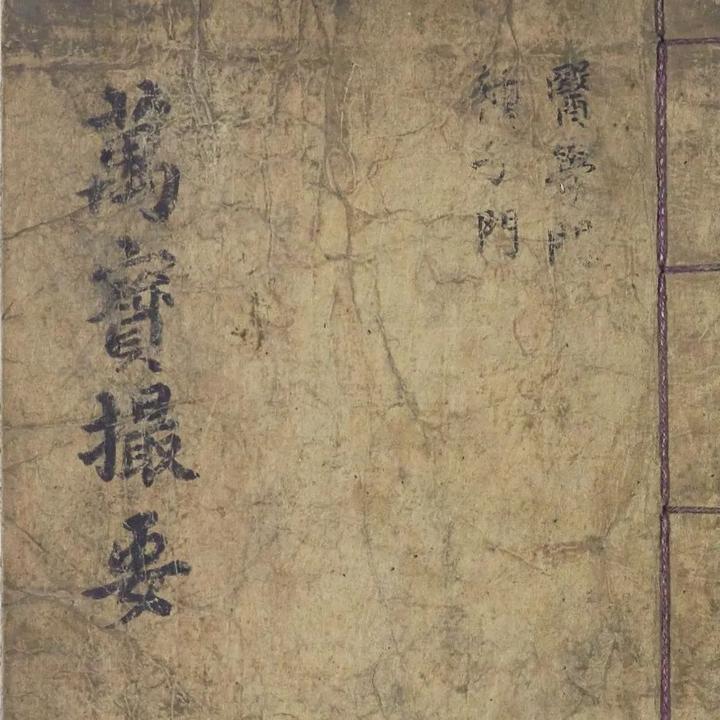 醫學門
子門
萬寶撮要